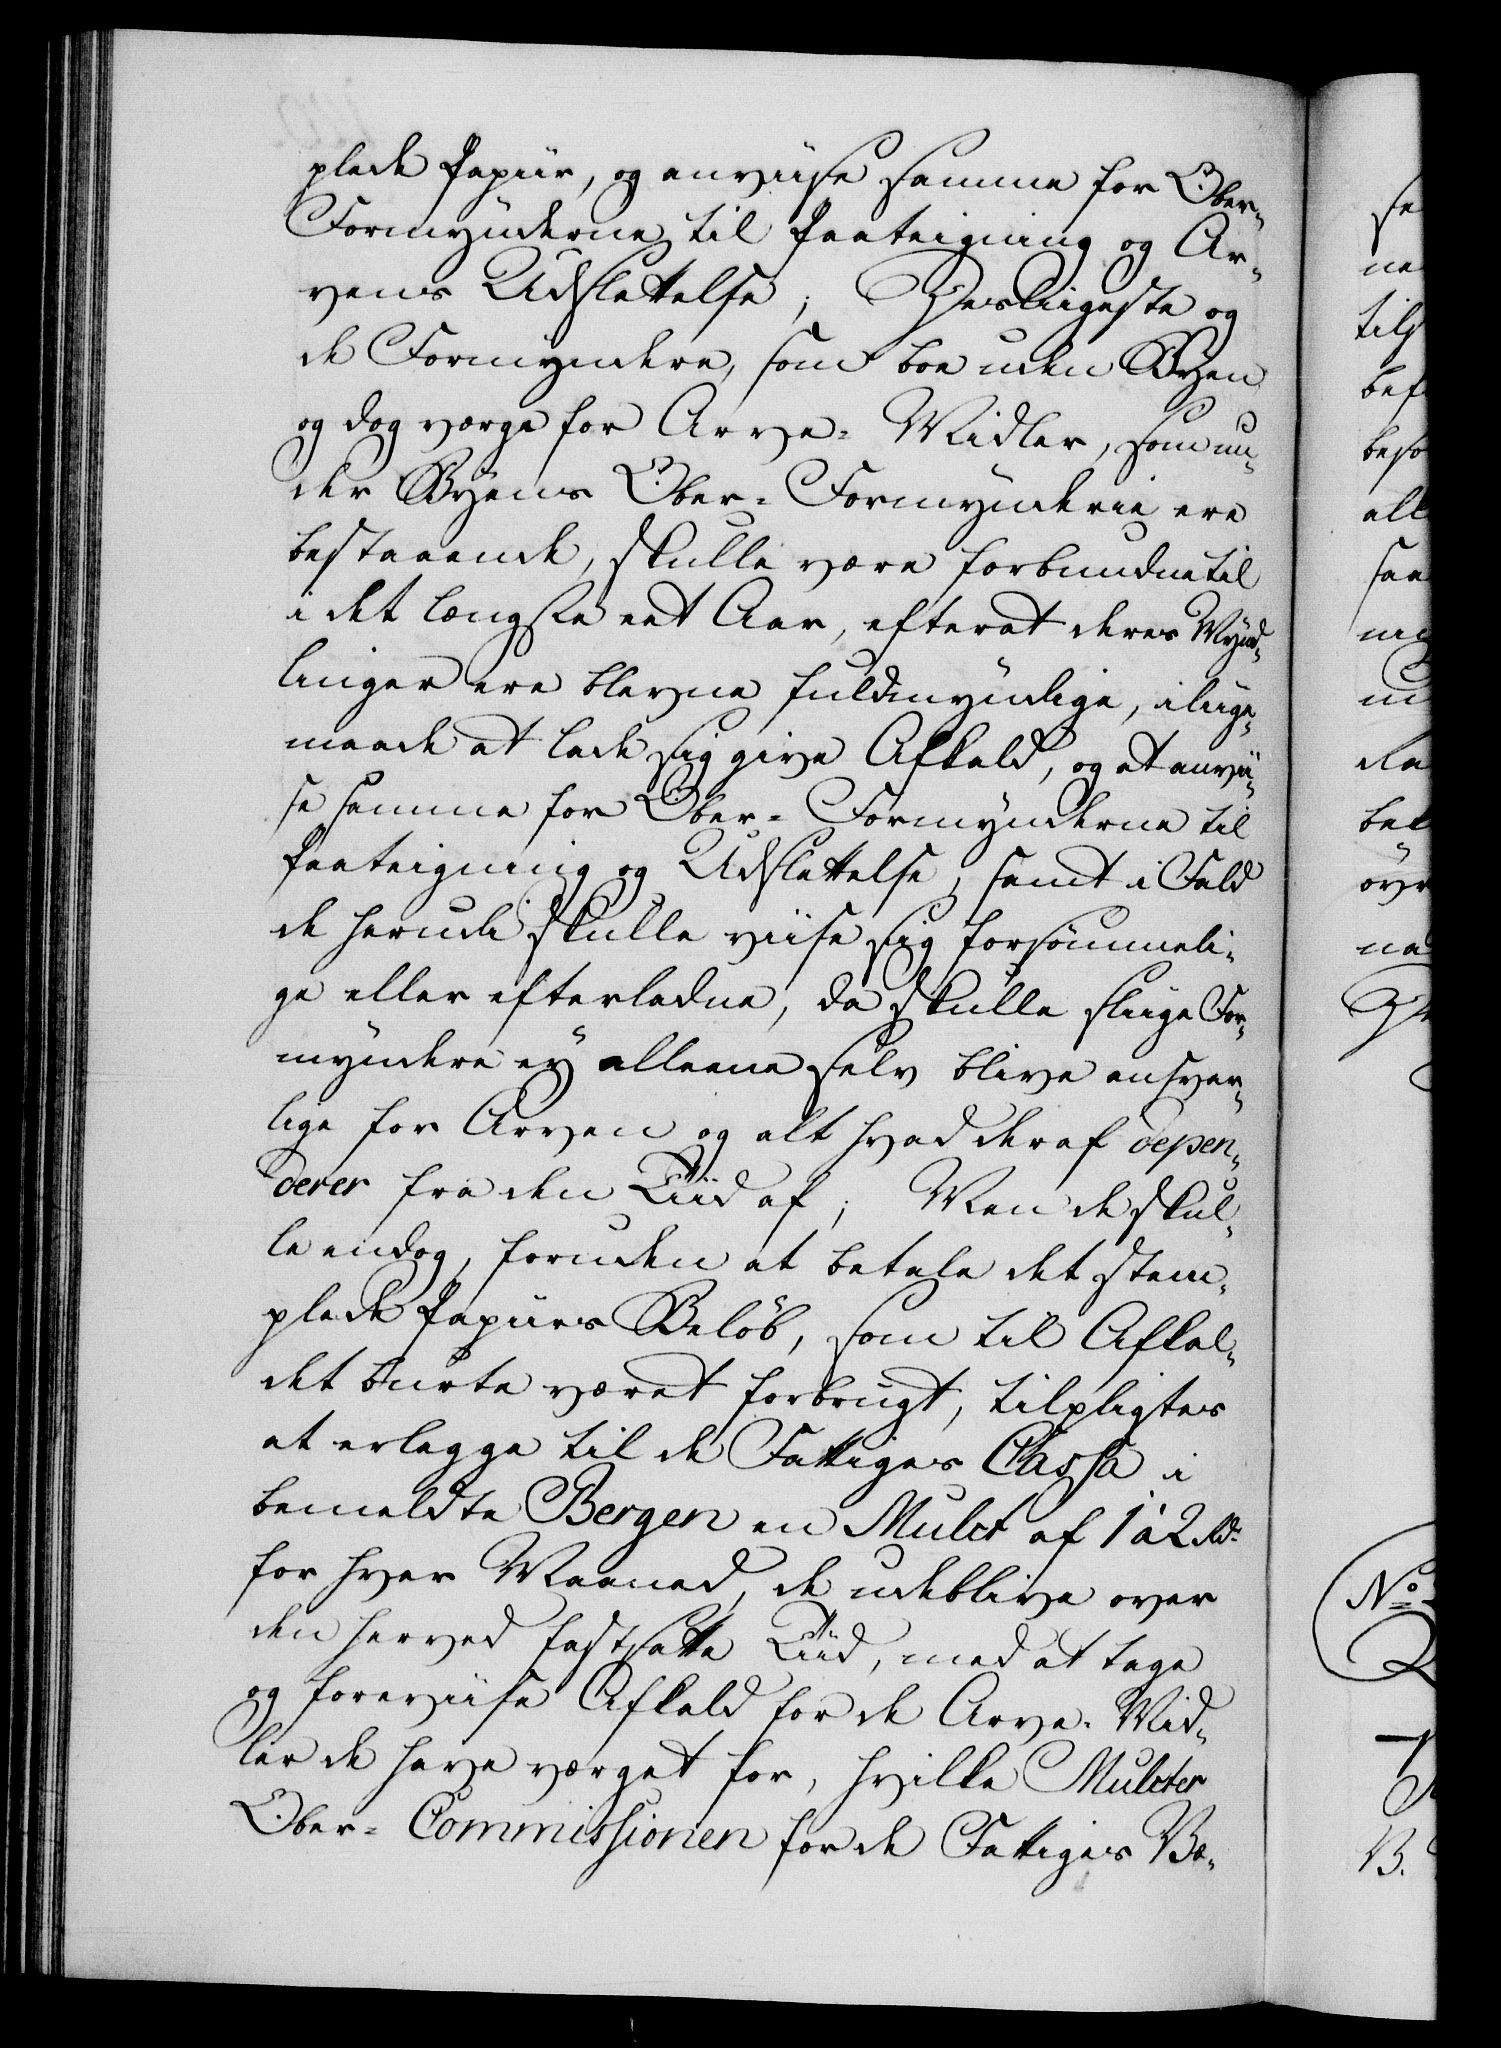 plede Papiir, og anviise samme for Ober¬
Formynderne til Paateigning og Ar¬
vens Udslettelse; Desliigeste og
de Formyndere, som boe uden Byen
og dog værge for Arve-Midler, som un¬
der Byens Ober-Formynderie ere
bestaaende, skulle være forbundne til
i det længste eet Aar, efterat deres Mynd¬
linger ere blevne fuldmyndige, i liige¬
maade at lade sig give Afkald, og at anvii¬
se samme for Ober-Formynderne til
Paateigning og Udslettelse, samt i Fald
de herudi skulle viise sig forsömmeli¬
ge eller efterladne, da skulle sliige For¬
myndere ey alleene selv blive ansvar¬
lige for Arven og alt hvad deraf depen¬
derer fra den Tiid af; Men de skul¬
le endog, foruden at betale det stem¬
plede Papiirs Belöb, som til Afkal¬
det burte været forbrugt, tilpligtes
at erlegge til de Fattiges Cassa i
bemeldte Bergen en Mulct af 1 a 2 Rd.
for hver Maaned, de udeblive over
den herved fastsatte Tiid, med at tage
og foreviise Afkald for de Arve-Mid¬
ler de have værget for, hvilke Mulcter
Ober-Commissionen for de Fattiges Væ¬